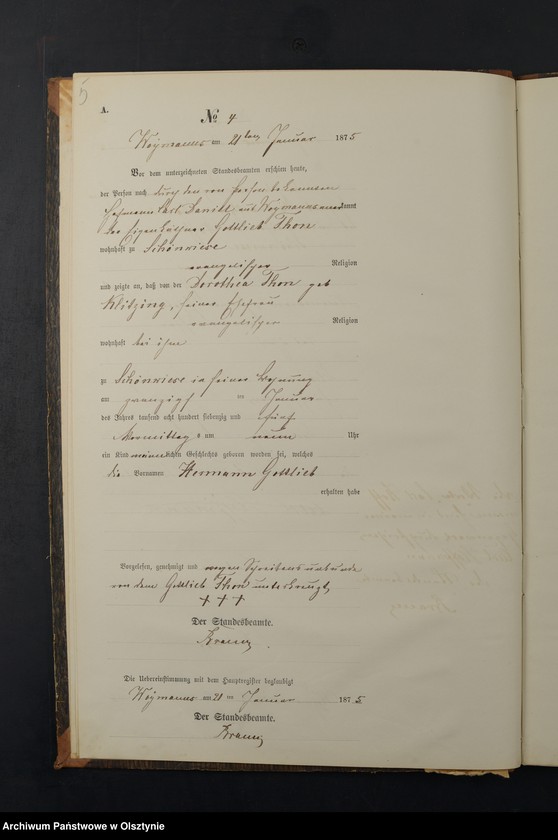 5
A.
No 4
Weymanns am 21ten Januar 1875
Vor dem unterzeichneten Standesbeamten erschien heute,
der Person nach durch den von Person bekannten
Carl Daniel aus Weymanns anerkannt
der Eigenkäthner Gottlieb Thon
wohnhaft zu Schönwiese
evangelischer Religion
und zeigte an, daß von der Dorothea Thon geb
Klitzing, seiner Ehefrau
evangelischer Religion
wohnhaft bei ihm
zu Schönwiese in seiner Wohnung
am zwanzigsten Januar
des Jahres tausend acht hundert siebenzig und fünf
Vormittags um neun Uhr
ein Kind männlichen Geschlechts geboren worden sei, welches
die Vornamen Hermann Gottlieb
erhalten habe
Vorgelesen, genehmigt und wegen Schreibensunkunde
von dem Gottlieb Thon unterkreuzt
+++
Der Standesbeamte.
Die Uebereinstimmung mit dem Hauptregister beglaubigt
Weymanns am 21ten Januar 1875
Der Standesbeamte.
Archiwum Państwowe w Olsztynie